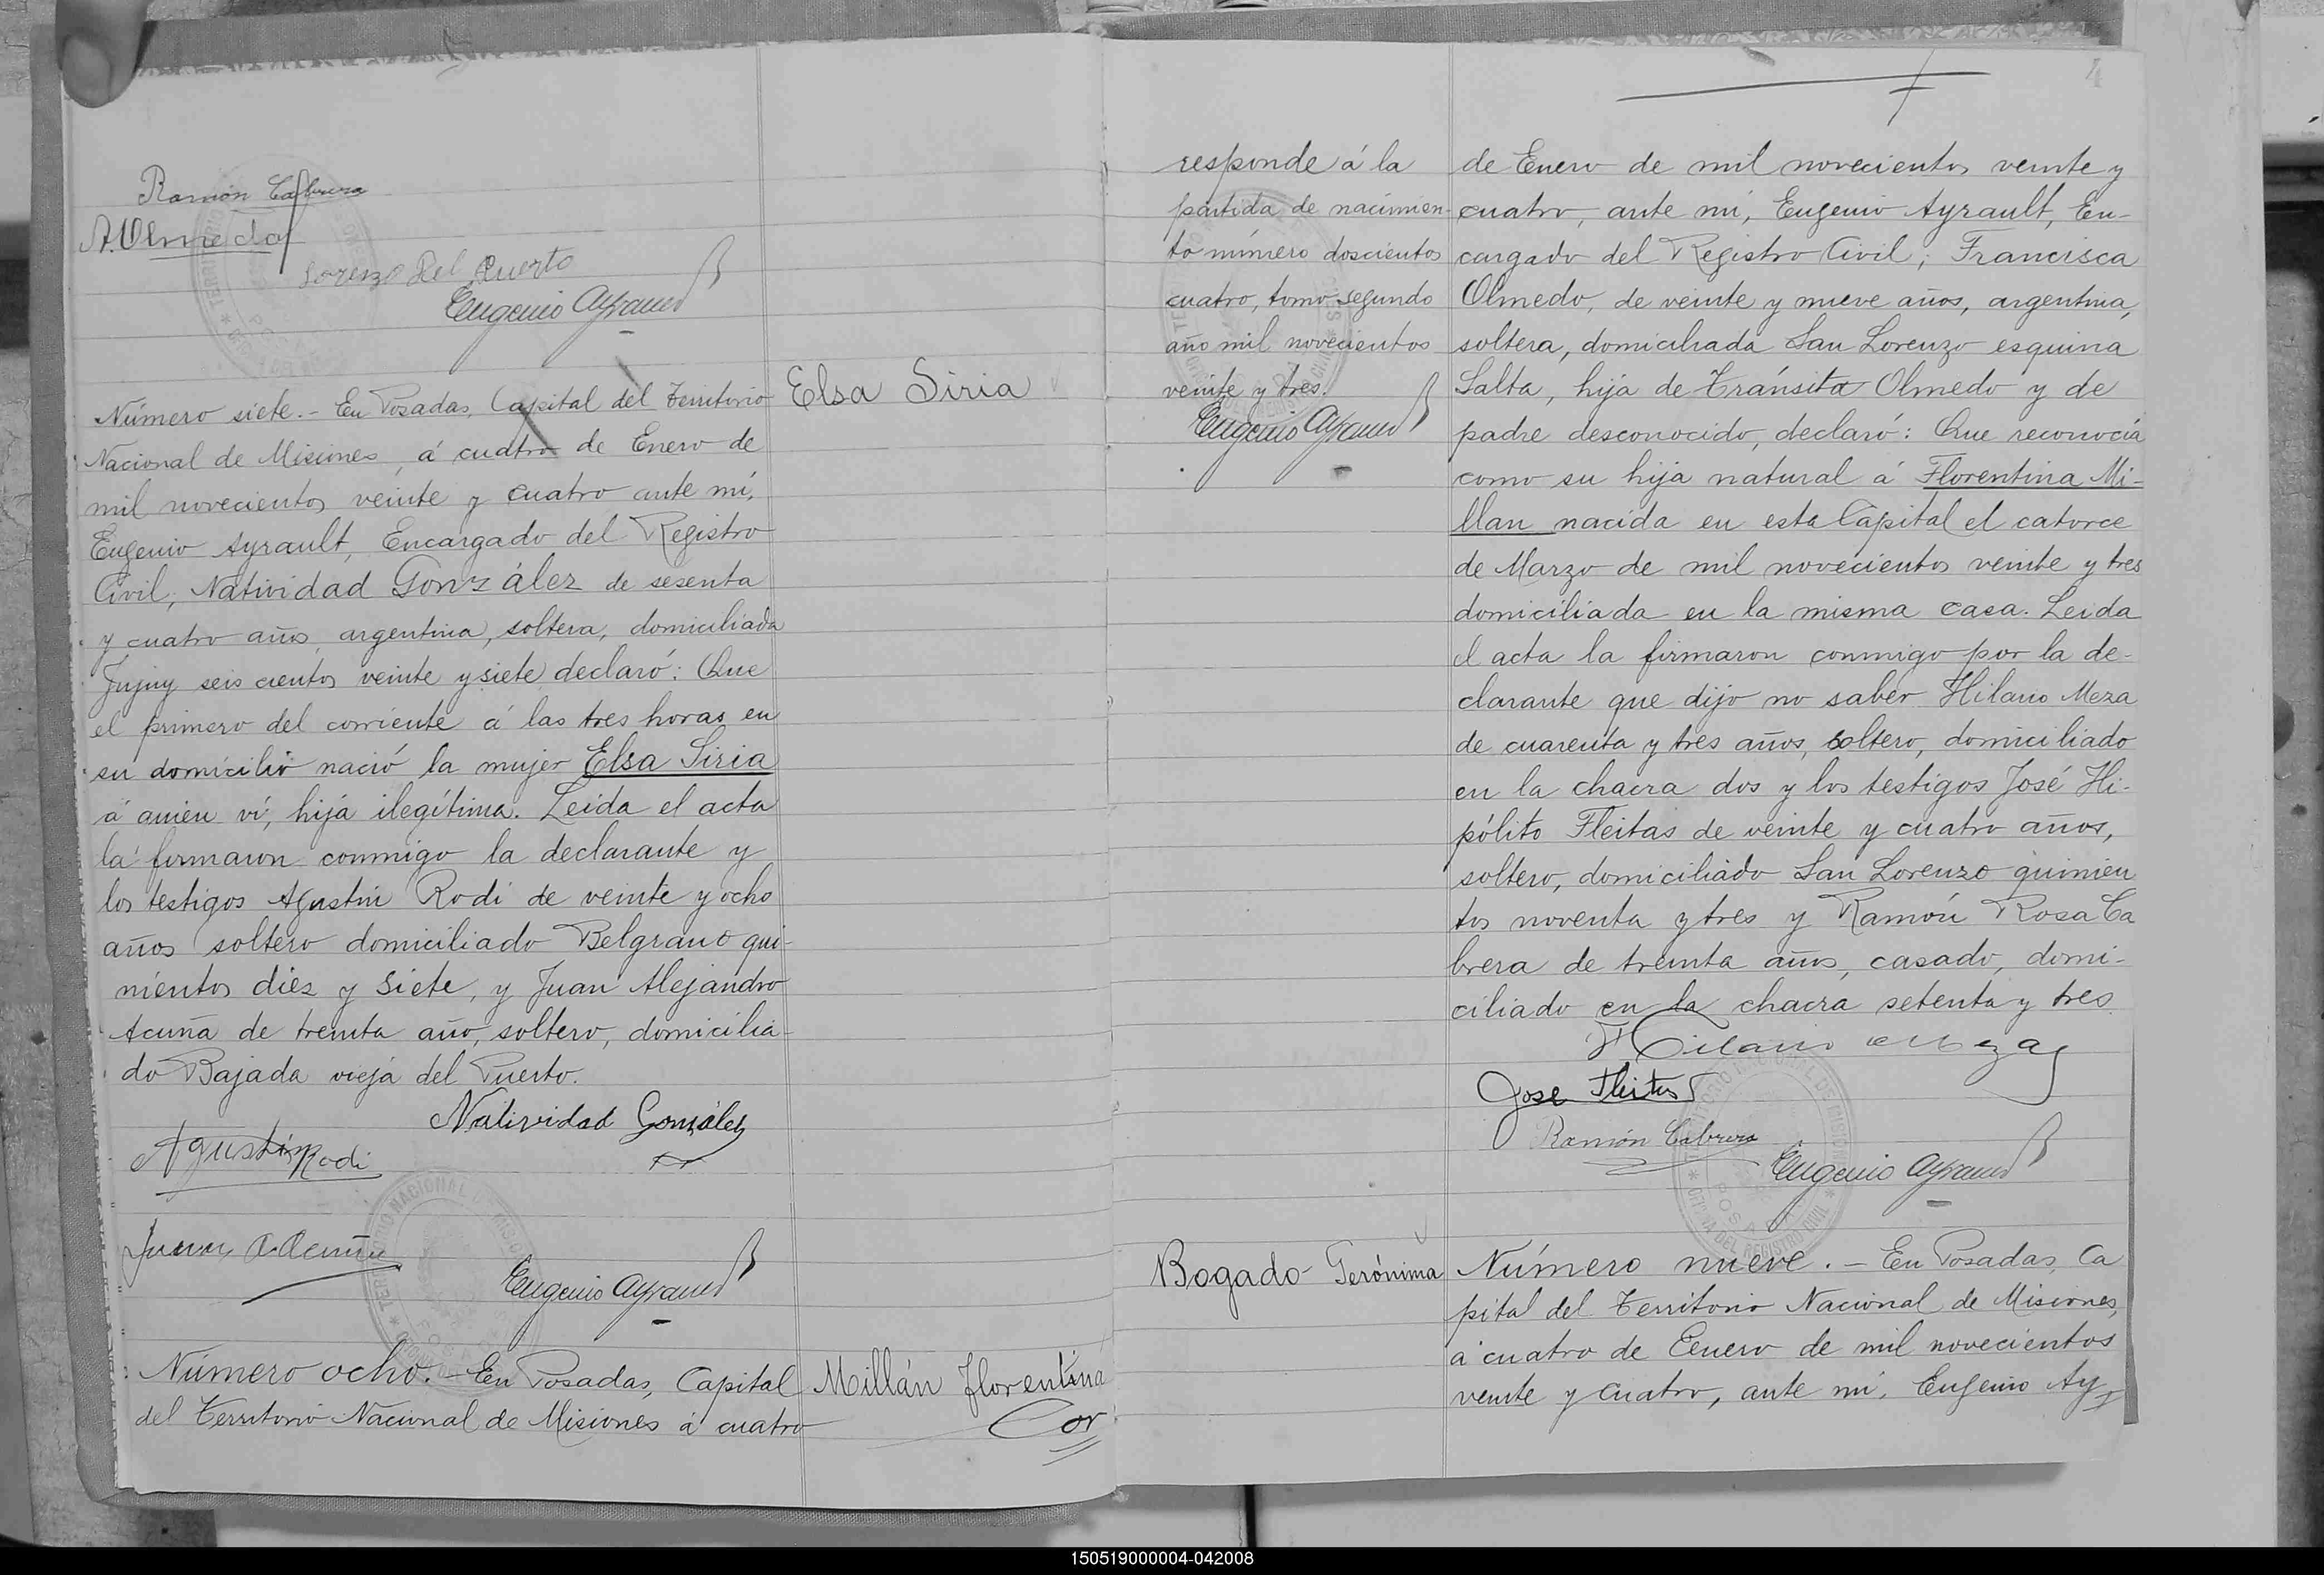 Ramón Cabrera
A. Olmeda
Lorenzo Del Puerto
Eugenio Ayrault
Número siete.- En Posadas, Capital del Territorio
Nacional de Misiones, á cuatro de Enero de
mil novecientos veinte y cuatro ante mí,
Eugenio Ayrault, Encargado del Registro
Civil, Natividad González de sesenta
y cuatro años, argentina, soltera, domiciliada
Jujuy seis cientos veinte y siete declaró: Que
el primero del corriente á las tres horas en
su domicilio nació la mujer Elsa Siria
á quien ví, hija ilegítima. Leida el acta
la firmaron conmigo la declarante y
los testigos Agustín Rodi de veinte y ocho
años soltero domiciliado Belgrano qui-
nientos diez y siete, y Juan Alejandro
Acuña de treinta año, soltero, domicilia-
do Bajada vieja del Puerto.
Natividad González
Agustín Rodi
Juan A. Acuña
Eugenio Ayrault
Elsa Siria
Número ocho.- En Posadas, Capital
del Territorio Nacional de Misiones á cuatro
Millán Florentina
Cor
responde á la
partida de nacimien-
to número doscientos
cuatro, tomo segundo
año mil novecientos
veinte y tres.
Eugenio Ayrault
4
de Enero de mil novecientos veinte y
cuatro, ante mí, Eugenio Ayrault, En-
cargado del Registro Civil; Francisca
Olmedo, de veinte y nueve años, argentina,
soltera, domiciliada San Lorenzo esquina
Salta, hija de Tránsita Olmedo y de
padre desconocido, declaró: Que reconocía
como su hija natural á Florentina Mi-
llan nacida en esta Capital el catorce
de Marzo de mil novecientos veinte y tres
domiciliada en la misma casa. Leida
el acta la firmaron conmigo por la de-
clarante que dijo no saber Hilario Meza
de cuarenta y tres años, soltero, domiciliado
en la chacra dos y los testigos José Hi-
pólito Fleitas de veinte y cuatro años,
soltero, domiciliado San Lorenzo quinien
tos noventa y tres y Ramón Rosa Ca
brera de treinta años, casado, domi-
ciliado en la chacra setenta y tres.
Hilario Meza
Jose Fleitas
Ramón Cabrera
Eugenio Ayrault
Bogado Gerónima
Número nueve.- En Posadas, Ca
pital del Territorio Nacional de Misiones,
á cuatro de Enero de mil novecientos
veinte y cuatro, ante mí, Eugenio Ay-
150519000004-042008